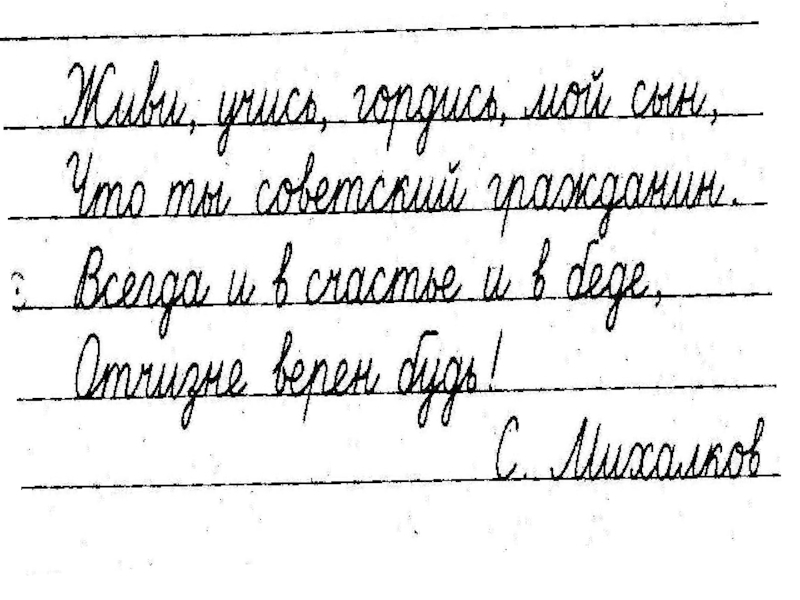 Живи, учись, гордись, мой сын,
Что ты советский гражданин.
Всегда и в счастье и в беде,
Отчизне верен будь!
С. Михалков